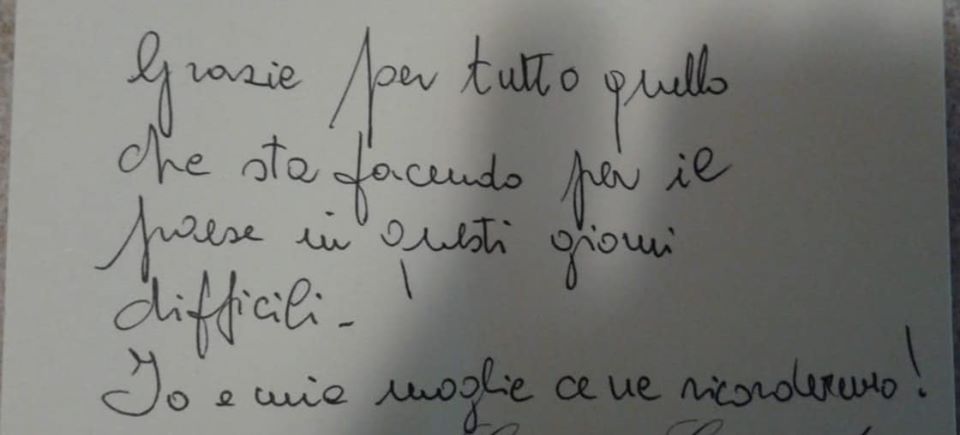 Grazie per tutto quello
che sta facendo per il
paese in questi giorni
difficili -
Io e mia moglie ce ne ricorderemo!